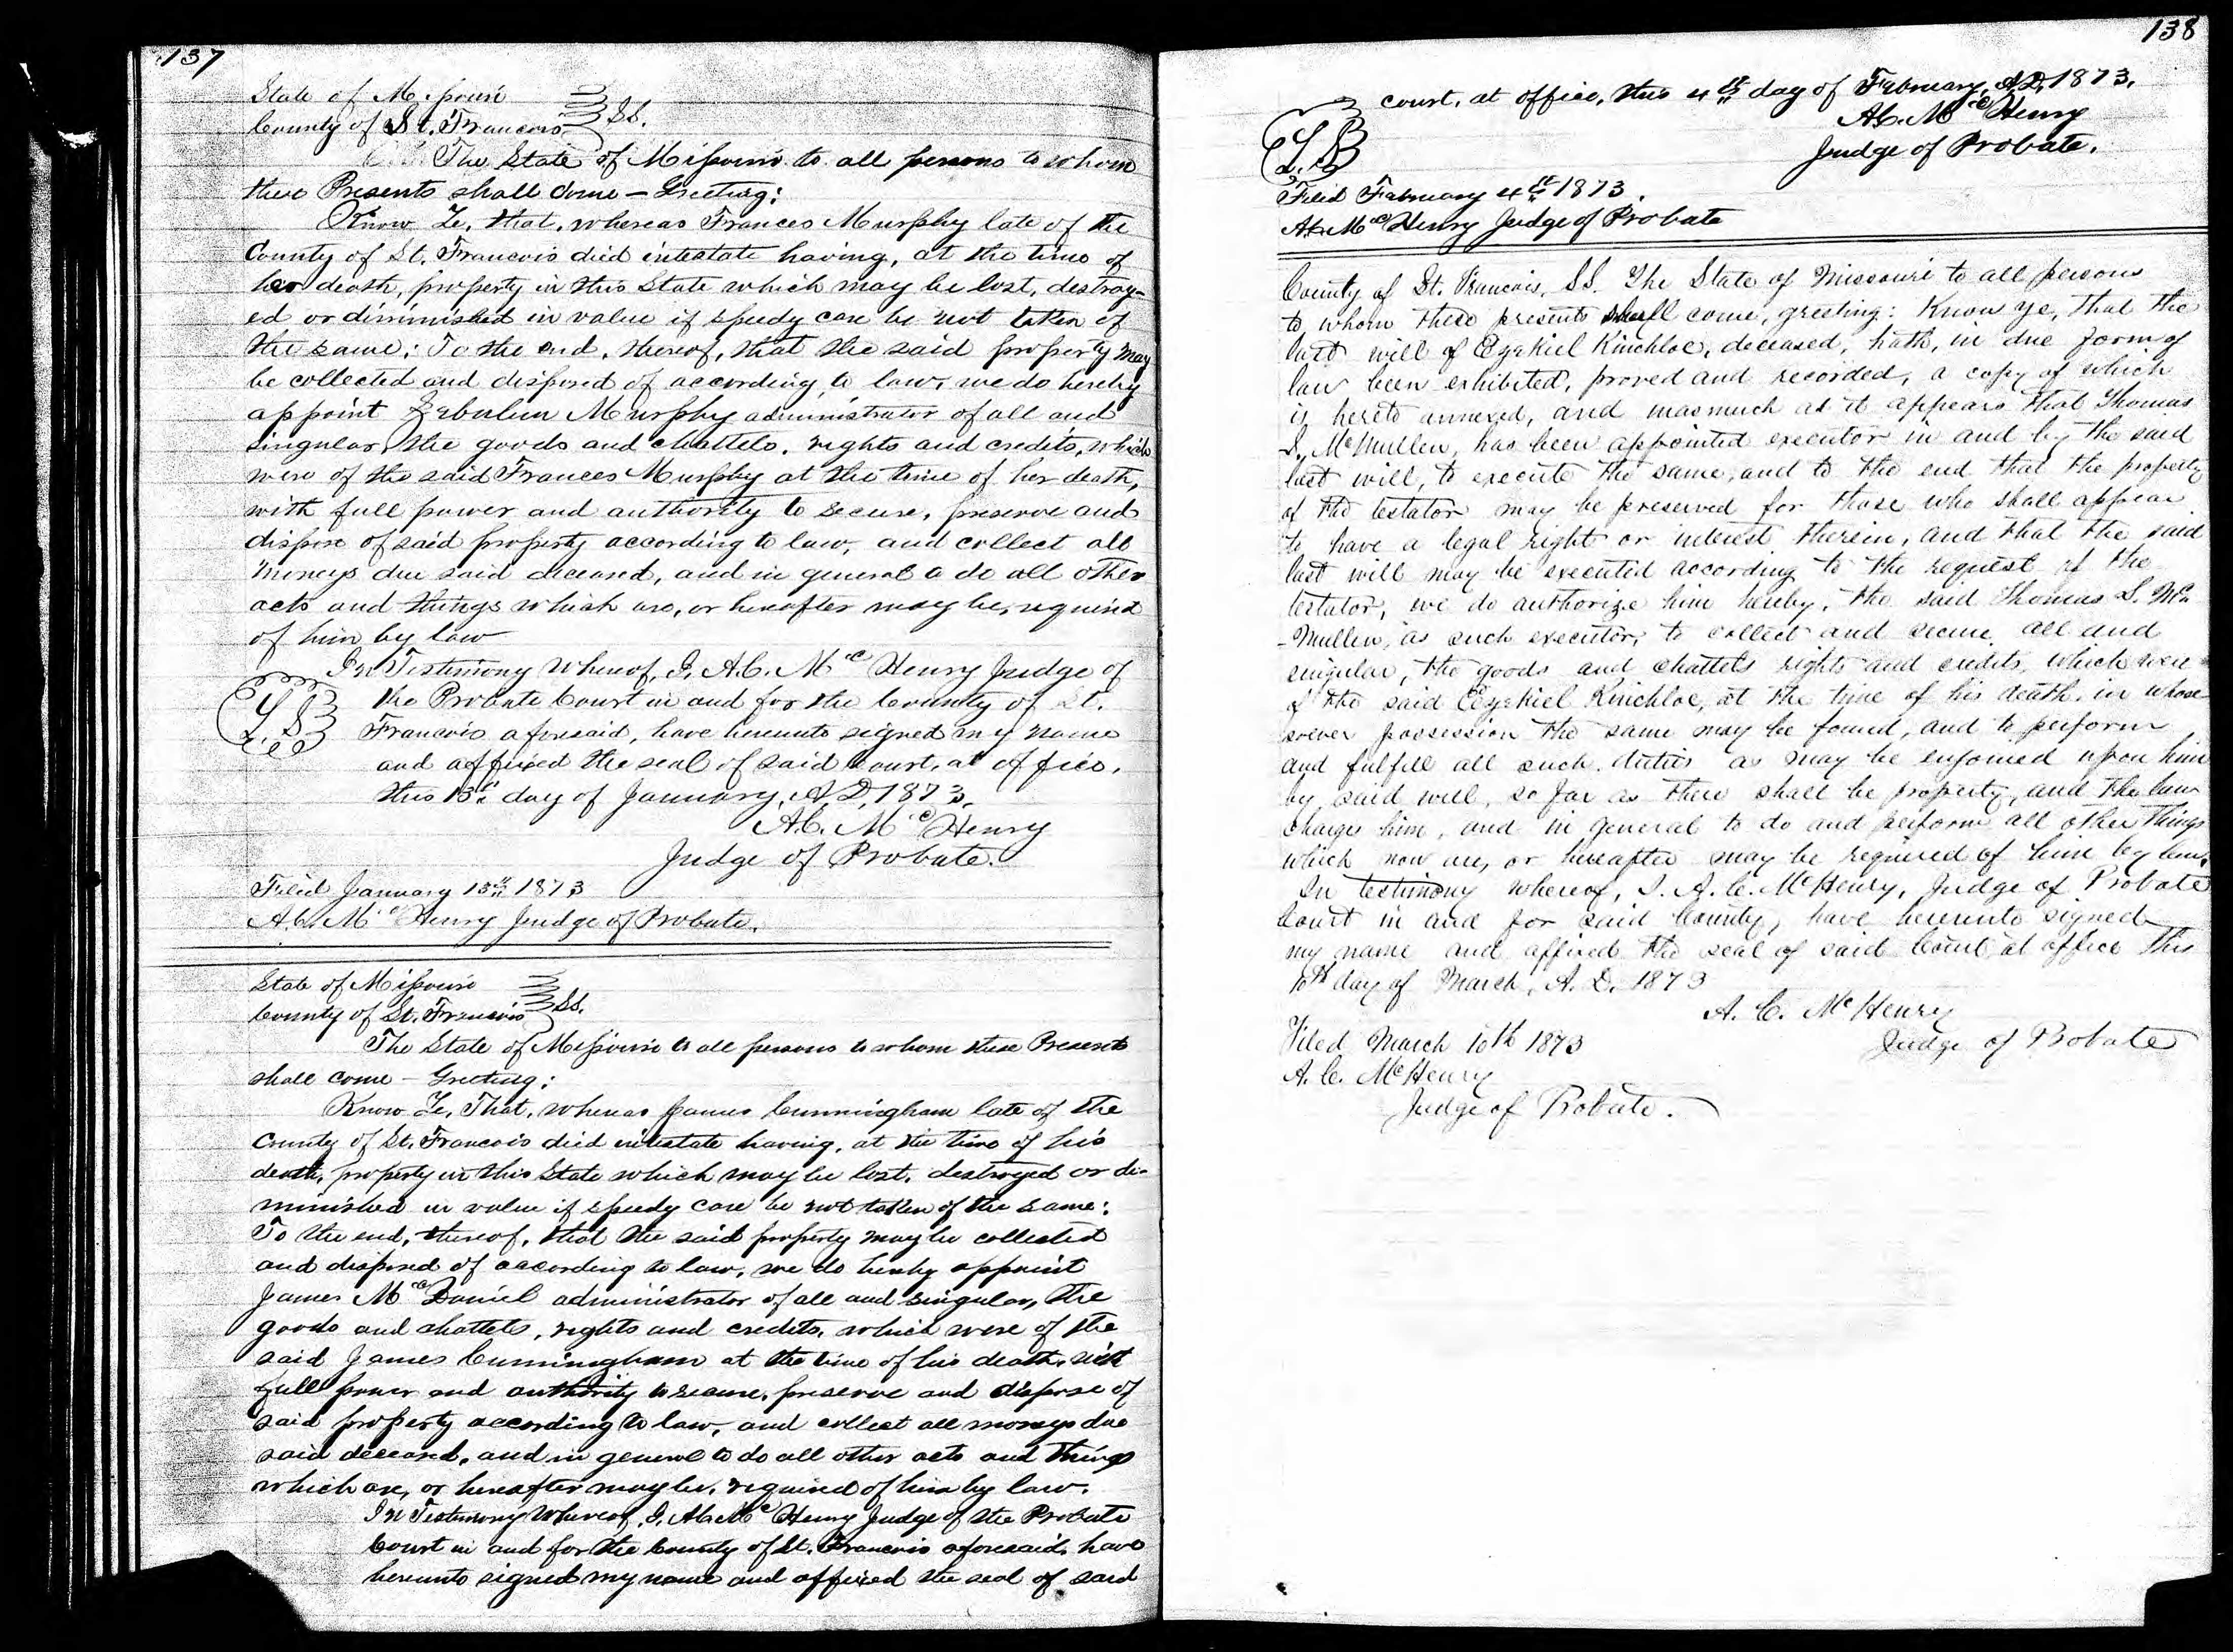 137
State of Missouri
County of St. Francois SS.
The State of Missouri to all persons to whom
these Presents shall come – Greeting:
Know Ye, that, whereas Frances Murphy late of the
County of St. Francois died intestate having, at the time of
her death, property in this State which may be lost, destroy-
ed or diminished in value if speedy care be not taken of
the same: To the end, thereof, that the said property may
be collected and disposed of according to law, we do hereby
appoint Zebulun Murphy administrator of all and
singular the goods and chattels, rights and credits, which
were of the said Frances Murphy at the time of her death,
with full power and authority to secure, preserve and
dispose of said property according to law, and collect all
moneys due said deceased, and in general to do all other
acts and things which are, or hereafter may be, required
of him by law
In Testimony Whereof, I, A.C. McHenry Judge of
the Probate Court in and for the County of St.
L.S.
Francois aforesaid, have hereunto signed my name
and affixed the seal of said Court, at office,
this 13th day of January, A.D. 1873.
A.C. McHenry
Judge of Probate.
Filed January 13th 1873
A.C. McHenry Judge of Probate.
State of Missouri
County of St. Francois SS.
The State of Missouri to all persons to whom these Presents
shall come – Greeting:
Know Ye, That, whereas James Cunningham late of the
County of St. Francois died intestate having, at the time of his
death, property in this State which may be lost, destroyed or di-
minished in value if speedy care be not taken of the same:
To the end, thereof, that the said property may be collected
and disposed of according to law, we do hereby appoint
James McDaniel administrator of all and singular, the
goods and chattels, rights and credits, which were of the
said James Cunningham at the time of his death, with
full power and authority to secure, preserve and dispose of
said property according to law, and collect all moneys due
said deceased, and in general to do all other acts and things
which are, or hereafter may be, required of him by law.
In Testimony Whereof, I, A.C. McHenry Judge of the Probate
Court in and for the County of St. Francois aforesaid, have
hereunto signed my name and affixed the seal of said
138
court, at office, this 4th day of February, A.D. 1873.
A.C. McHenry
L.S.
Judge of Probate.
Filed February 4th 1873.
A.C. McHenry Judge of Probate
County of St. Francois, SS. The State of Missouri to all persons
to whom these presents shall come, greeting: Know ye, that the
last will of Ezekiel Kinchloe, deceased, hath, in due form of
law been exhibited, proved and recorded, a copy of which
is hereto annexed, and inasmuch as it appears that Thomas
S. McMullen, has been appointed executor in and by the said
last will, to execute the same, and to the end that the property
of the testator may be preserved for those who shall appear
to have a legal right or interest therein, and that the said
last will may be executed according to the request of the
testator, we do authorize him hereby, the said Thomas S. Mc-
-Mullen, as such executor, to collect and secure all and
singular, the goods and chattels rights and credits, which were
of the said Ezekiel Kinchloe, at the time of his death, in whose-
soever possession the same may be found, and to perform
and fulfill all such duties as may be enjoined upon him
by said will, so far as there shall be property, and the law
charges him, and in general to do and perform all other things
which now are, or hereafter may be required of him by law.
In testimony whereof, I, A. C. McHenry, Judge of Probate
Court in and for said County, have hereunto signed
my name and affixed the seal of said Court at office this
10th day of March, A. D. 1873
A. C. McHenry
Judge of Probate
Filed March 10th 1873
A. C. McHenry
Judge of Probate.